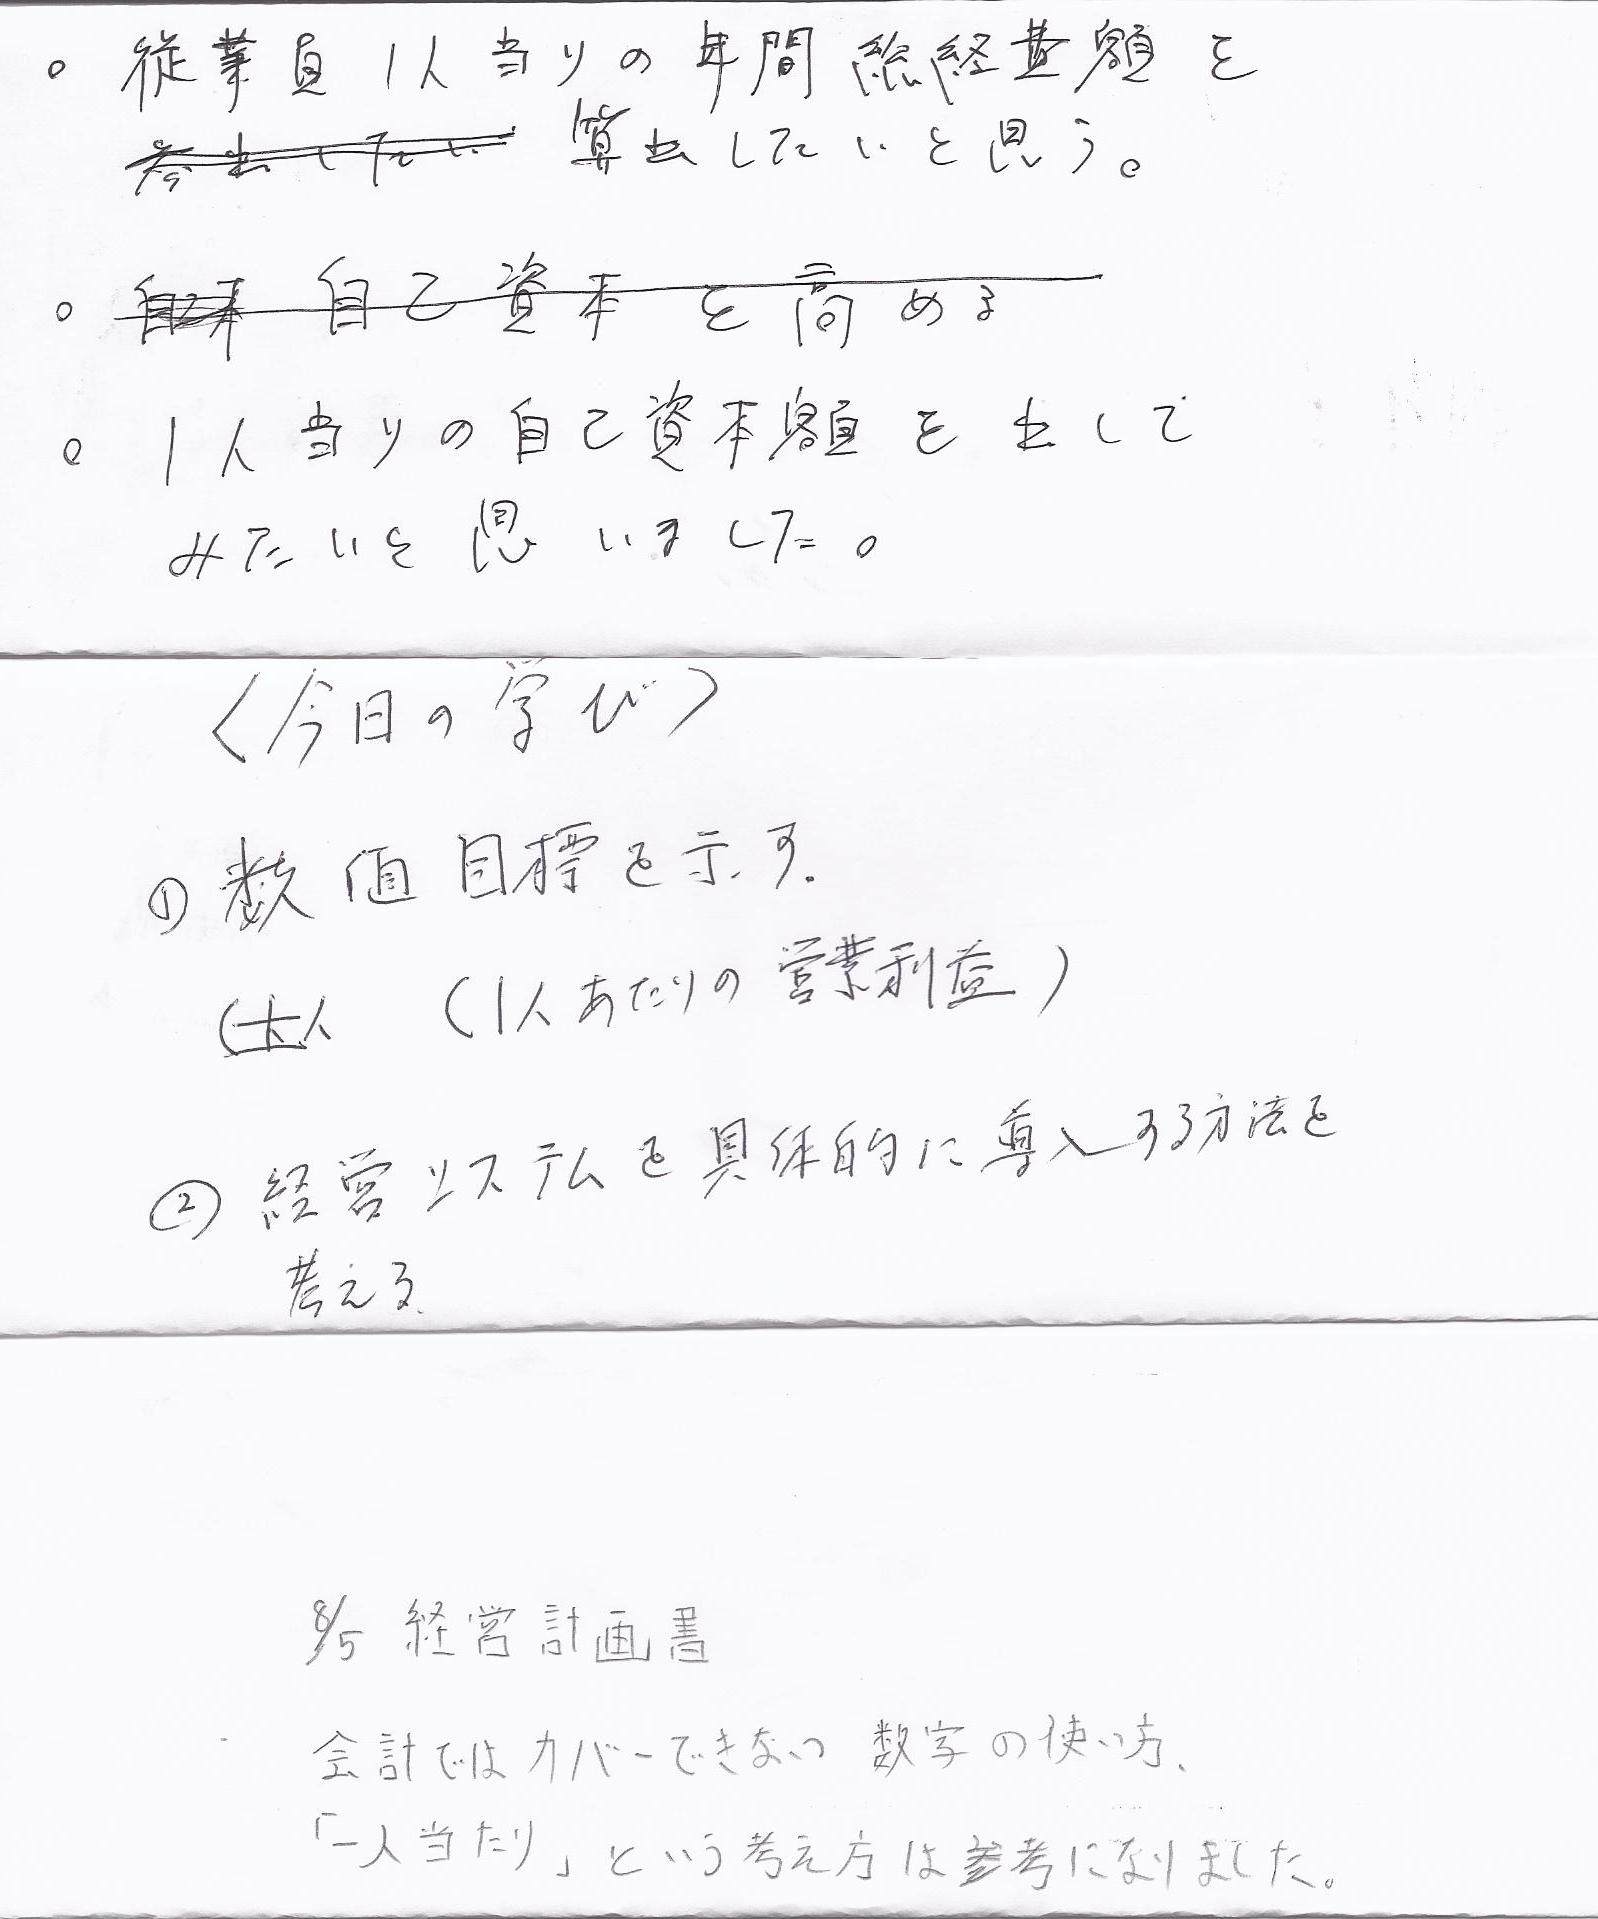 ○ 従業員1人当りの年間総経費額を
算出したいと思う。
○ 自己資本を高める
○ 1人当りの自己資本額を出して
みたいと思いました。
〈今日の学び〉
① 数値目標を示す。
(1人あたりの営業利益)
② 経営システムを具体的に導入する方法を
考える。
8/5 経営計画書
会計ではカバーできない数字の使い方、
「一人当たり」という考え方は参考になりました。